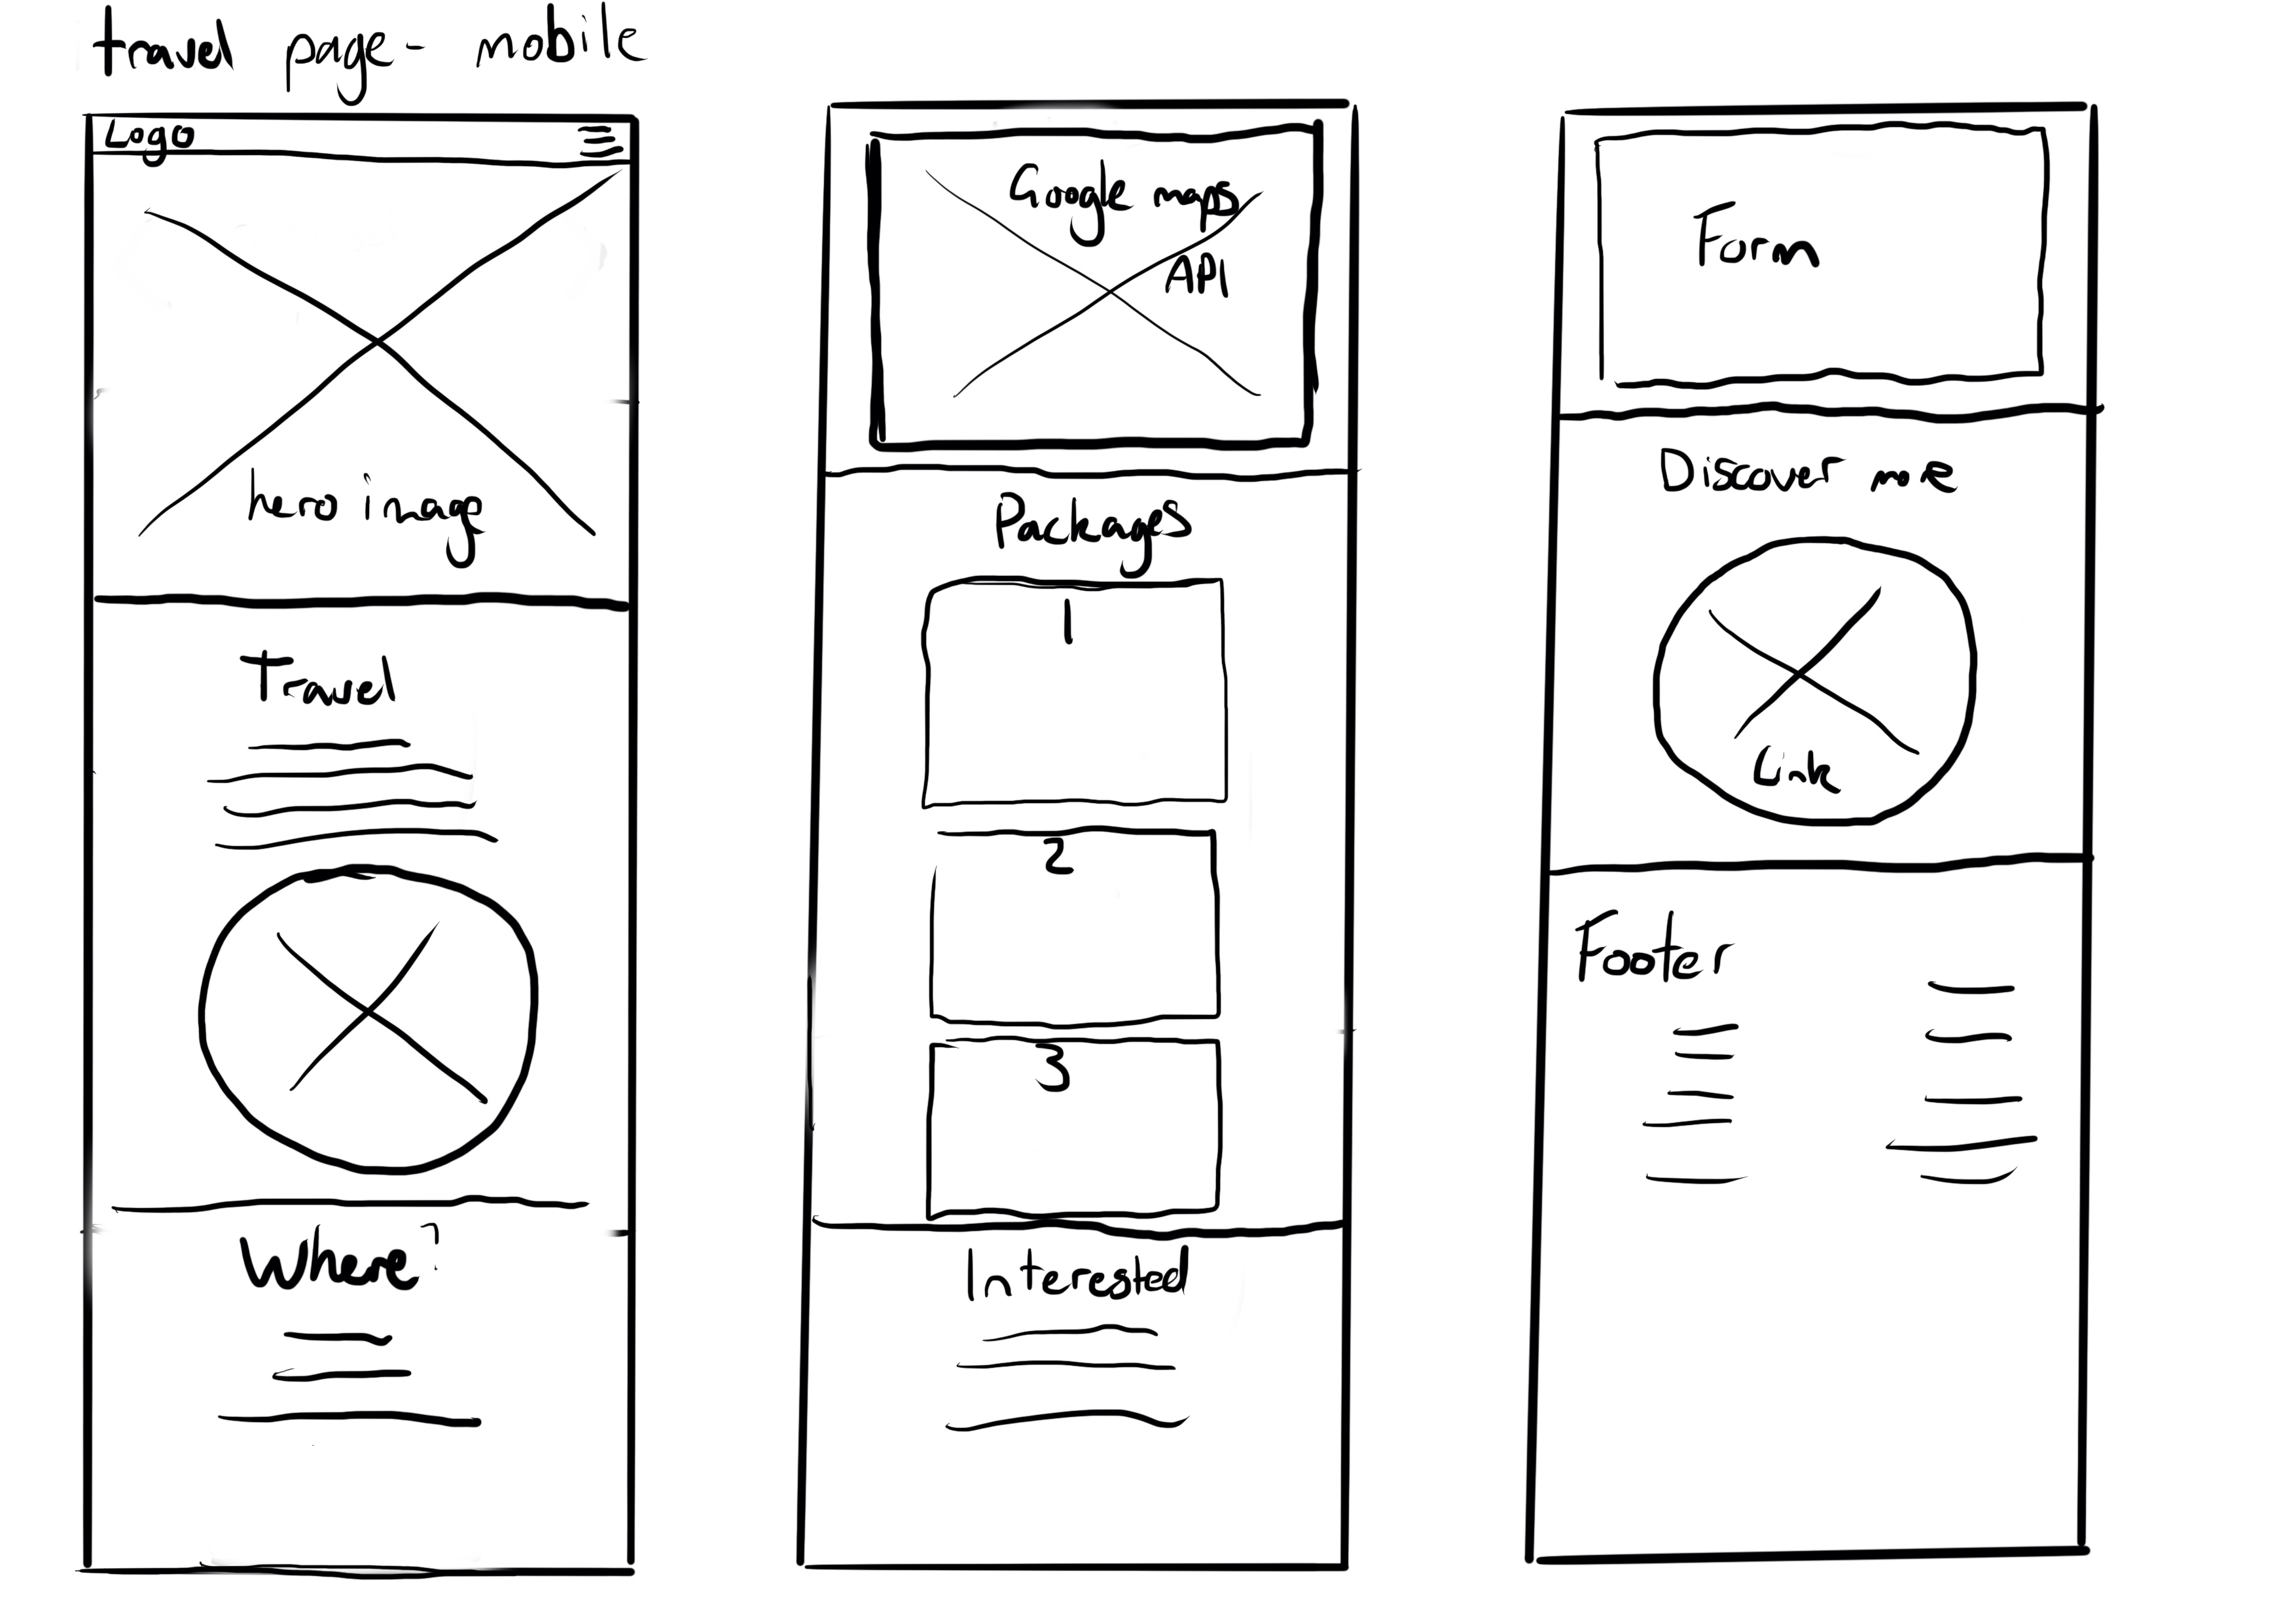 travel page - mobile
Logo
hero image
Travel
Where?
Google maps
API
Packages
1
2
3
Interested
Form
Discover more
Link
Footer